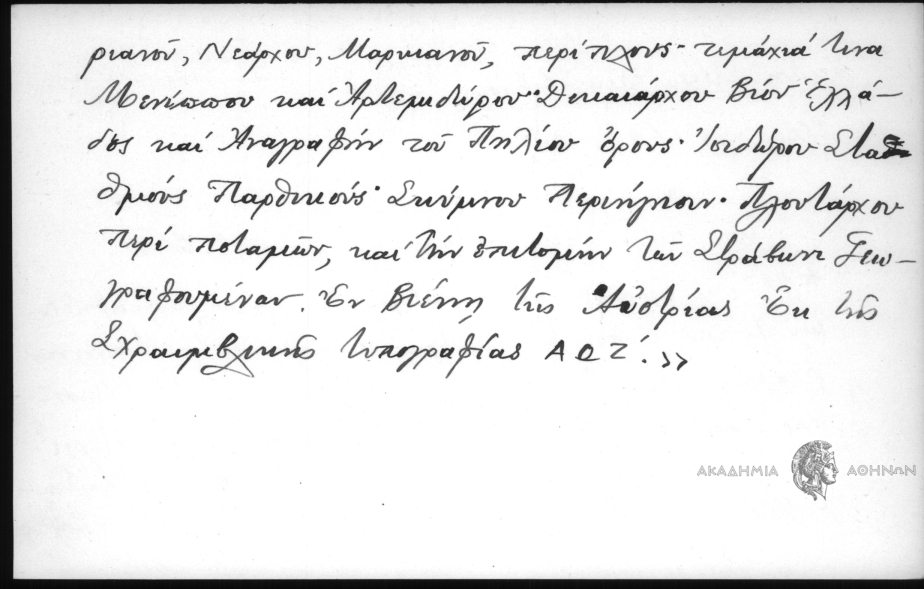 ριανοῦ, Νεάρχου, Μαρκιανοῦ, περίπλους· τμάχιά τινα
Μενίππου καί Ἀρτεμιδώρου· Δικαιάρχου Βίον Ἑλλά-
δος καί Ἀναγραφήν τοῦ Πηλίου ὄρους· Ἰσιδώρου Στα
θμούς Παρθικούς· Σκύμνου Περιήγησιν· Πλουτάρχου
Περί ποταμῶν, καί τήν ἐπιτομήν τῶν Στράβωνι Γεω-
γραφουμένων. Ἐν Βιέννῃ τῆς Αὐστρίας Ἐκ τῆς
Σχραιμβλικῆς τυπογραφίας ΑΩΖ΄.»
ΑΚΑΔΗΜΙΑ ΑΘΗΝΩΝ